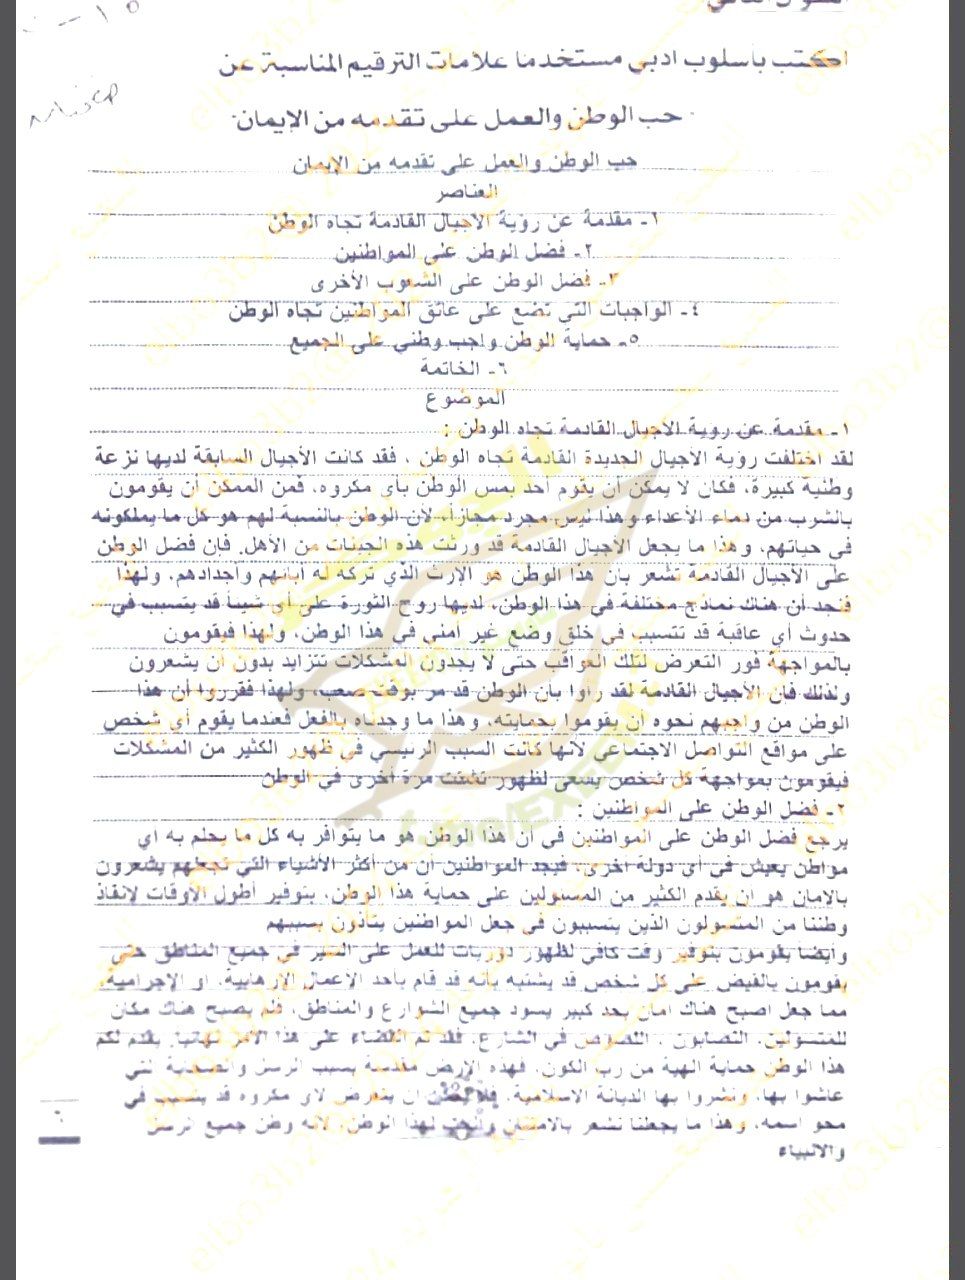 السؤال الثاني
اكتب بأسلوب ادبي مستخدما علامات الترقيم المناسبة عن
حب الوطن والعمل على تقدمه من الإيمان
حب الوطن والعمل على تقدمه من الإيمان
العناصر
١- مقدمة عن رؤية الاجيال القادمة تجاه الوطن
٢- فضل الوطن على المواطنين
٣- فضل الوطن على الشعوب الأخرى
٤- الواجبات التي تضع على عاتق المواطنين تجاه الوطن
٥- حماية الوطن واجب وطني على الجميع
٦- الخاتمة
الموضوع
١- مقدمة عن روية الاجيال القادمة تجاه الوطن :
لقد اختلفت رؤية الأجيال الجديدة القادمة تجاه الوطن ، فقد كانت الأجيال السابقة لديها نزعة
وطنية كبيرة، فكان لا يمكن أن يقوم أحد بمس الوطن بأي مكروه، فمن الممكن أن يقومون
بالشرب من دماء الأعداء وهذا ليس مجرد مجازا، لأن الوطن بالنسبة لهم هو كل ما يملكونه
في حياتهم، وهذا ما يجعل الأجيال القادمة قد ورثت هذه الجينات من الأهل. فإن فضل الوطن
على الأجيال القادمة تشعر بأن هذا الوطن هو الإرث الذي تركه له آبائهم وأجدادهم، ولهذا
فنجد أن هناك نماذج مختلفة في هذا الوطن، لديها روح الثورة على أي شيئا قد يتسبب في
حدوث أي عاقبة قد تتسبب في خلق وضع غير أمني في هذا الوطن، ولهذا فيقومون
بالمواجهة فور التعرض لتلك العواقب حتى لا يجدون المشكلات تتزايد بدون أن يشعرون
ولذلك فإن الأجيال القادمة لقد رأوا بأن الوطن قد مر بوقت صعب، ولهذا فقرروا أن هذا
الوطن من واجبهم نحوه أن يقوموا بحمايته، وهذا ما وجدناه بالفعل فعندما يقوم أي شخص
على مواقع التواصل الاجتماعي لأنها كانت السبب الرئيسي في ظهور الكثير من المشكلات
فيقومون بمواجهة كل شخص يسعى لظهور تشتت مرة أخرى في الوطن
٢- فضل الوطن على المواطنين :
يرجع فضل الوطن على المواطنين في أن هذا الوطن هو ما يتوافر به كل ما يحلم به أي
مواطن يعيش في أي دولة أخرى، فيجد المواطنين أن من أكثر الأشياء التي تجعلهم يشعرون
بالامان هو أن يقدم الكثير من المسئولين على حماية هذا الوطن، بتوفير أطول الأوقات لإنقاذ
وطننا من المتسولون الذين يتسببون في جعل المواطنين يتأذون بسببهم
وأيضا يقومون بتوفير وقت كافي لظهور دوريات للعمل على السير في جميع المناطق حتى
يقومون بالقبض على كل شخص قد يشتبه بأنه قد قام بأحد الاعمال الارهابية، او الإجرامية،
مما جعل اصبح هناك امان بحد كبير يسود جميع الشوارع والمناطق، فلم يصبح هناك مكان
للمتسولين، النصابون ، اللصوص في الشارع، فقد تم القضاء على هذا الأمر نهائيا. يقدم لكم
هذا الوطن حماية الهية من رب الكون، فهذه الأرض مقدسة بسبب الرسل والصحابة التي
عاشوا بها، ونشروا بها الديانة الاسلامية، فلا يمكن ان يتعرض لأي مكروه قد يتسبب في
محو اسمه، وهذا ما يجعلنا نشعر بالامتنان والحب لهذا الوطن، لانه وطن جميع الرسل
والانبياء